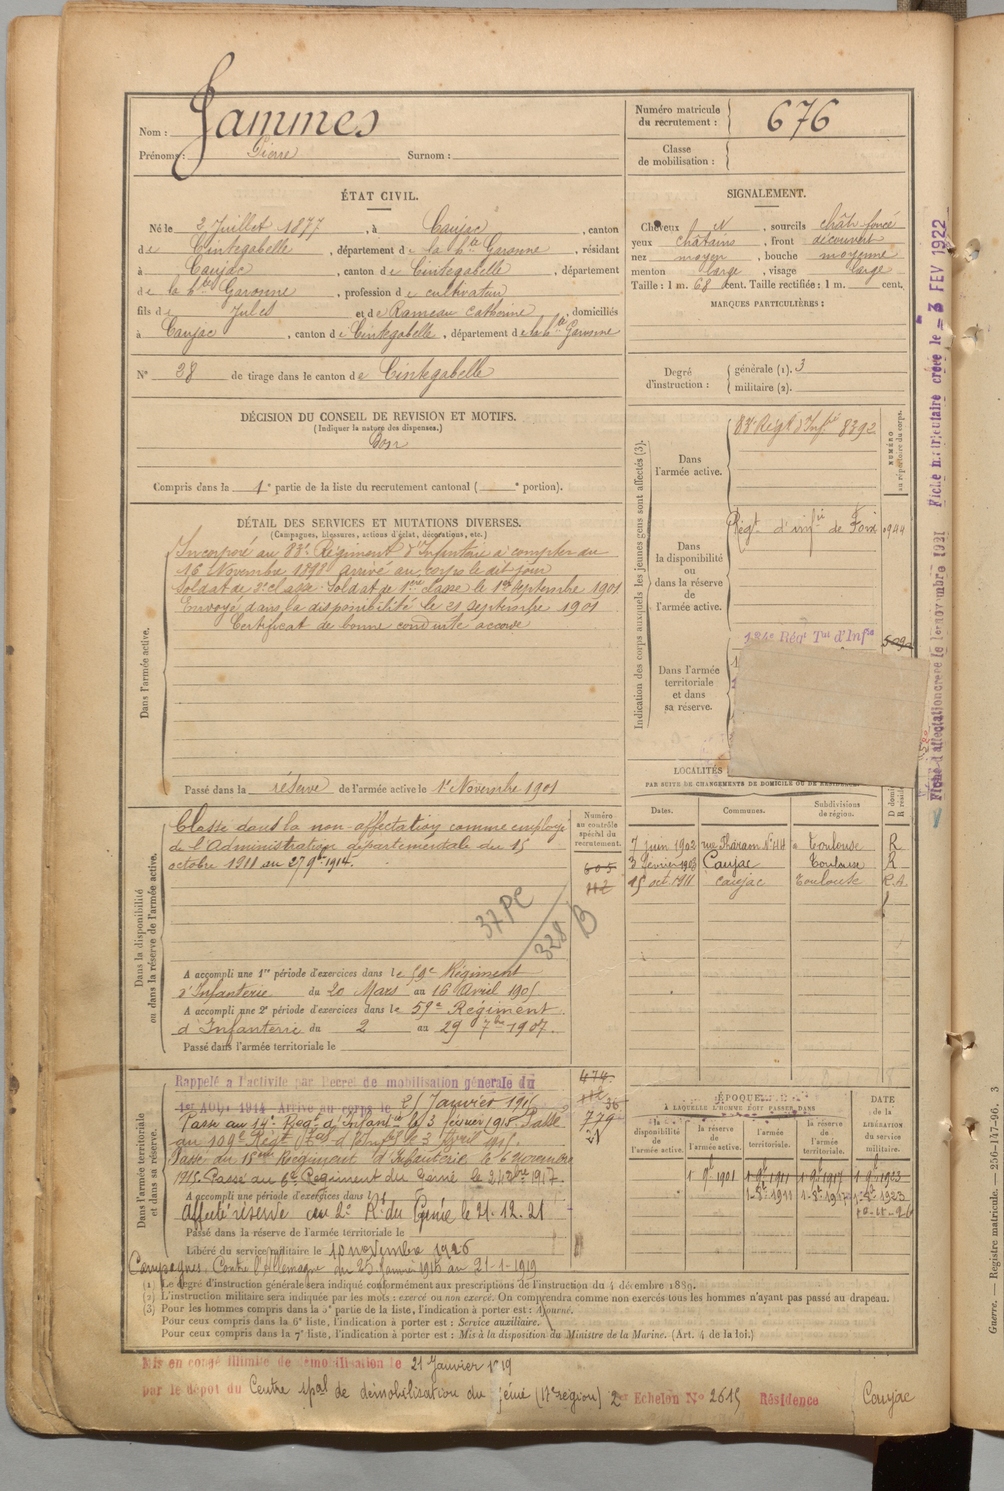 Nom : Jammes
Prénoms : Pierre Surnom :
Numéro matricule du recrutement : 676
Classe de mobilisation :
ÉTAT CIVIL.
Né le 2 Juillet 1877, à Caujac, canton
de Cintegabelle, département de la hte Garonne, résidant
à Caujac, canton de Cintegabelle, département
de la hte Garonne, profession de cultivateur
fils de Jules et de Rameau Catherine, domiciliés
à Caujac, canton de Cintegabelle, département de la hte Garonne
N° 38 de tirage dans le canton de Cintegabelle
SIGNALEMENT.
Cheveux N, sourcils chât foncé
yeux châtains, front découvert
nez moyen, bouche moyenne
menton large, visage large
Taille : 1 m. 68 cent. Taille rectifiée : 1 m. cent.
MARQUES PARTICULIÈRES :
Degré d'instruction : générale (1). 3
militaire (2).
DÉCISION DU CONSEIL DE REVISION ET MOTIFS.
(Indiquer la nature des dispenses.)
Bon
Compris dans la 1e partie de la liste du recrutement cantonal ( e portion).
DÉTAIL DES SERVICES ET MUTATIONS DIVERSES.
(Campagnes, blessures, actions d'éclat, décorations, etc.)
Dans l'armée active.
Incorporé au 83e Régiment d'Infanterie à compter du
16 Novembre 1898 Arrivé au corps le dit jour
Soldat de 2e classe. Soldat de 1ere classe le 1er Septembre 1901
Envoyé dans la disponibilité le 21 septembre 1901
Certificat de bonne conduite accordé
Passé dans la réserve de l'armée active le 1er Novembre 1901
Indication des corps auxquels les jeunes gens sont affectés (3).
NUMÉRO au répertoire du corps.
Dans l'armée active.
83e Régt d'Infie 8392
Dans la disponibilité ou dans la réserve de l'armée active.
Régt d'infie de Foix 0944
Dans l'armée territoriale et dans sa réserve.
134e Régt Tal d'Infie
LOCALITÉS
PAR SUITE DE CHANGEMENTS DE DOMICILE OU DE RÉSIDENCE
Dates. Communes. Subdivisions de région. D domi R résid
7 juin 1902 rue Tharam N° 114 Toulouse R
3 fevrier 1903 Caujac Toulouse R
15 oct. 1911 Caujac Toulouse R.A
Dans la disponibilité ou dans la réserve de l'armée active.
Numéro au contrôle spécial du recrutement.
605
112
Classé dans la non-affectation comme employé
de l'Administration départementale du 15
octobre 1911 au 27 9bre 1914.
37 PC
328 B
A accompli une 1re période d'exercices dans le 59e Régiment
d'Infanterie du 20 Mars au 16 Avril 1905
A accompli une 2e période d'exercices dans le 59e Régiment
d'Infanterie du 2 au 29 7bre 1907.
Passé dans l'armée territoriale le
Dans l'armée territoriale et dans sa réserve.
474
112 36
779
21
Rappelé à l'activité par Décret de mobilisation générale du
1er AOUT 1914 Arrivé au corps le 25 Janvier 1915
Passé au 14e Regt d'Infanterie le 3 février 1915. Passé
au 109e Regt Tal d'Infie le 3 Avril 1915.
Passé au 15eme Régiment d'Infanterie le 6 Novembre
1915. Passé au 6e Régiment du Génie le 24 8bre 1917.
A accompli une période d'exercices dans l
Affecté réserve au 2e Rt du Génie le 21.12.21
Passé dans la réserve de l'armée territoriale le
Libéré du service militaire le 10 novembre 1926
Campagnes : Contre l'Allemagne du 25 Janvier 1915 au 21-1-1919
ÉPOQUE
À LAQUELLE L'HOMME DOIT PASSER DANS
la disponibilité de l'armée active. la réserve de l'armée active. l'armée territoriale. la réserve de l'armée territoriale.
DATE de la LIBÉRATION du service militaire.
1 9e 1901 1-9e-1911 1-9e-1917 1-9e-1923
1-8e-1911 1-8e-1917 1-8e-1923
10-11-26
(1) Le degré d'instruction générale sera indiqué conformément aux prescriptions de l'instruction du 4 décembre 1889.
(2) L'instruction militaire sera indiquée par les mots : exercé ou non exercé. On comprendra comme non exercés tous les hommes n'ayant pas passé au drapeau.
(3) Pour les hommes compris dans la 5e partie de la liste, l'indication à porter est : Ajourné.
Pour ceux compris dans la 6e liste, l'indication à porter est : Service auxiliaire.
Pour ceux compris dans la 7e liste, l'indication à porter est : Mis à la disposition du Ministre de la Marine. (Art. 4 de la loi.)
Mis en congé illimité de démobilisation le 21 Janvier 1919
par le dépôt du Centre spal de démobilisation du Génie (17e région) 2e Echelon N° 2615 Résidence Caujac
Fiche d'affectation créée le 1er novembre 1921 Fiche matriculaire créée le 3 FEV 1922
Guerre. — Registre matricule. — 256-147-96. 3